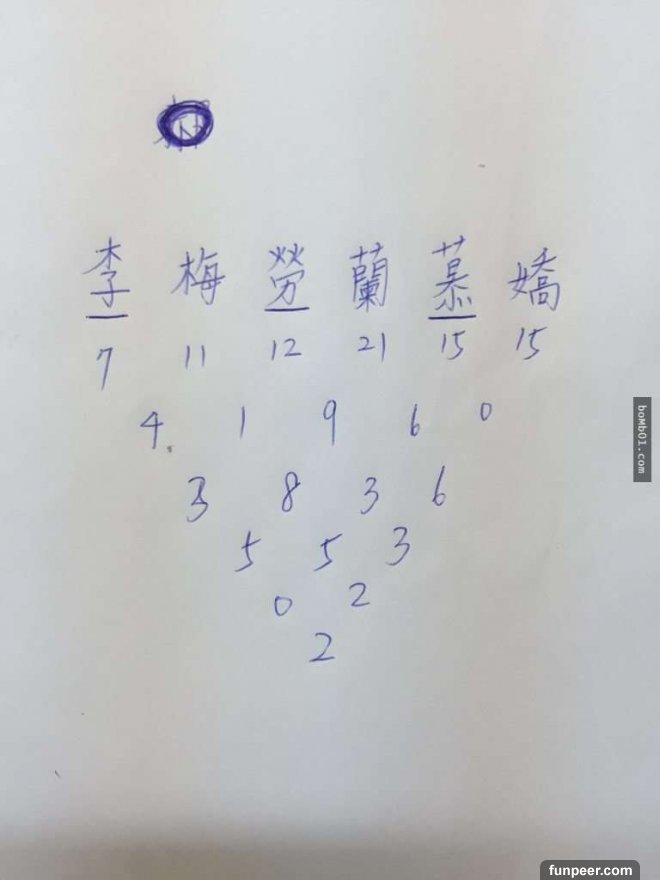 李 梅 勞 蘭 慕 嬌
7 11 12 21 15 15
4 1 9 6 0
3 8 3 6
5 5 3
0 2
2
bomb01.com
funpeer.com